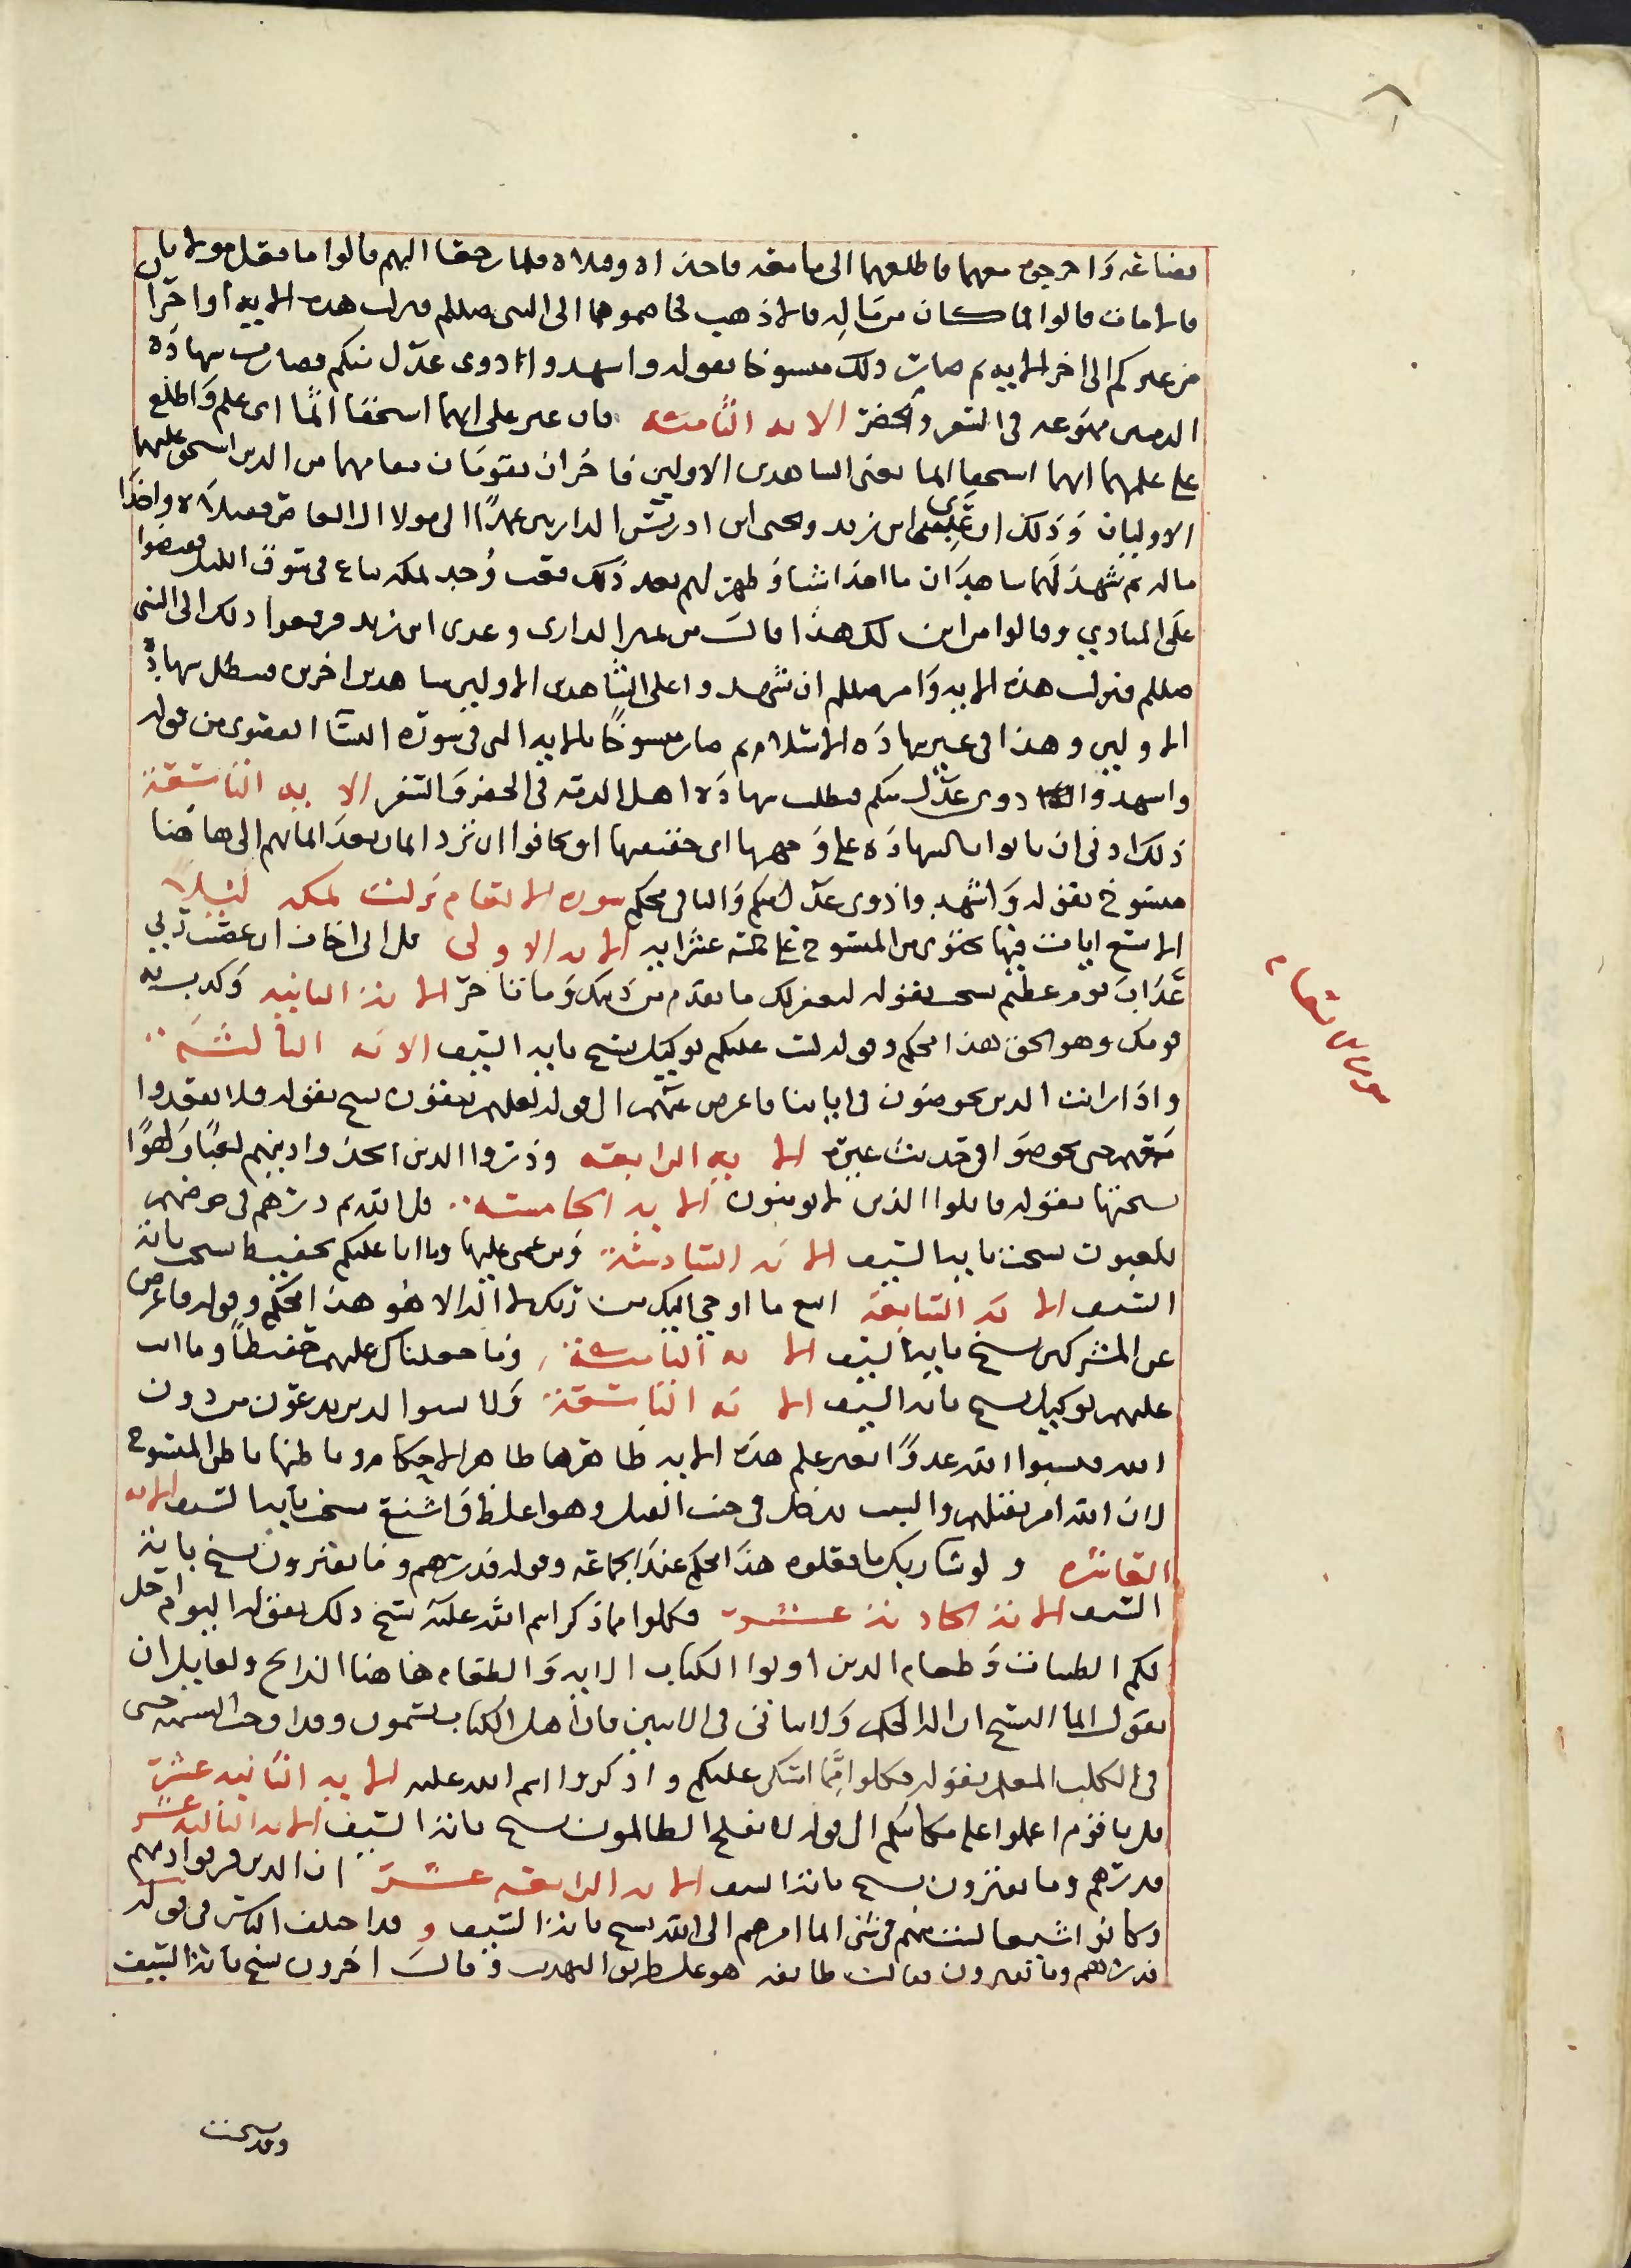 بضاعه واخرجوه معهما فاطلعهما الى ما معه فاخذاه وقتلاه فلما رجعا اليهم قالوا ما فعل مولانا
قالا مات قالوا فما كان من ماله قالا ذهب فخاصموهما الى النبي صللم فنزلت هذه الايه او اخران
من غيركم الى اخر الايه ثم صار ذلك منسوخا بقوله واشهدوا ذوى عدل منكم فصارت شهادة
الذميين ممنوعه في السفر والحضر الايه الثامنه فان عثر على انهما استحقا اثما اى علم واطلع
على عليهما انهما استحقا اثما يعنى الشاهدين الاولين فاخران يقومان مقامهما من الذين استحق عليهما
الاوليان وذلك ان عدى ابن زيد
ماله ثم شهد لهما شاهدان ما اخذا شيا وظهر لهم بعد ذلك قعب وجد بمكه يباع في سوق الليل فقبضوا
على المنادي وقالوا من اين لك هذا قالـ من تميم الدارى وعدى ابن زيد فرفعوا ذلك الى النبي
صللم فنزلت هذه الايه وامر صللم ان يشهدوا على الشاهدين الاولين شاهدين اخرين فبطل شهادة
الاولين وهذا في غير شهادة الاسلام ثم صار منسوخا بالايه التي في سورة النسا القصرى من قوله
واشهدوا ذوى عدل منكم فبطلت شهادة اهل الذمه في الحضر والسفر الايه التاسعة
ذلك ادنى ان ياتوا بالشهاده على وجهها اى حقيقتها او يخافوا ان ترد ايمان بعد ايمانهم الى هاهنا
منسوخ بقوله واشهدوا ذوى عدل منكم والباقى محكم سورة الانعام نزلت بمكه ليلا
الا تسع ايات فيها يحتوى من المنسوخ على خمسه عشر ايه الايه الاولى قل انى اخاف ان عصيت ربي
عذاب يوم عظيم نسخت بقوله ليغفر لك ما تقدم من ذنبك وما تاخر الايه الثانيه وكذب به
قومك وهو الحق هذا محكم وقوله لست عليكم بوكيل نسخ بايه السيف الايه الثالثه
واذا رايت الذين يخوضون في اياتنا فاعرض عنهم الى قوله لعلهم يتقون نسخ بقوله فلا تقعدوا
معهم حتى يخوضوا في حديث غيره الايه الرابعه وذروا الذين اتخذوا دينهم لعبا ولهوا
نسختها بقوله قاتلوا الذين لا يومنون الايه الخامسه قل الله ثم ذرهم في خوضهم
يلعبون نسخت بايه السيف الايه السادسة ومن عمى عليها وما انا عليكم بحفيظ نسخت بايه
السيف الايه السابعة اتبع ما اوحي اليك من ربك لا اله الا هو هذا محكم وقوله فاعرض
عن المشركين نسخ بايه السيف الايه الثامنة وما جعلناك عليهم حفيظا وما انت
عليهم بوكيل نسخ بايه السيف الايه التاسعة ولا تسبوا الذين يدعون من دون
الله فيسبوا الله عدوا بغير علم هذه الايه ظاهرها ظاهر الاحكام وباطنها باطن المنسوخ
لان الله امر بقتلهم والسب يدخل في جنب القتل وهو اغلظ واشنع نسخت بايه السيف الايه
العاشره ولو شا ربك ما فعلوه هذا محكم عند الجماعه وقوله فذرهم وما يفترون نسخ بايه
السيف الايه الحاديه عشرة فكلوا مما ذكر اسم الله عليه نسخ ذلك بقوله اليوم احل
لكم الطيبات وطعام الذين اوتوا الكتاب الايه والطعام هاهنا الذبايح ولقايل ان
يقول
في الكلب المعلم بقوله فكلوا مما امسكن عليكم واذكروا اسم الله عليه الايه الثانيه عشرة
قل يا قوم اعملوا على مكانتكم الى قوله لا يفلح الظالمون نسخ بايه السيف الايه الثالثه عشر
فذرهم وما يفترون نسخ بايه السيف الايه الرابعه عشرة ان الذين فرقوا دينهم
وكانوا شيعا لست منهم في شى انما امرهم الى الله نسخ بايه السيف وقد اختلف الناس في قوله
فذرهم وما يفترون فقالت طايفه هو على طريق التهديد وقالـ اخرون نسخ بايه السيف
سورة الانعام
وقد نسخت